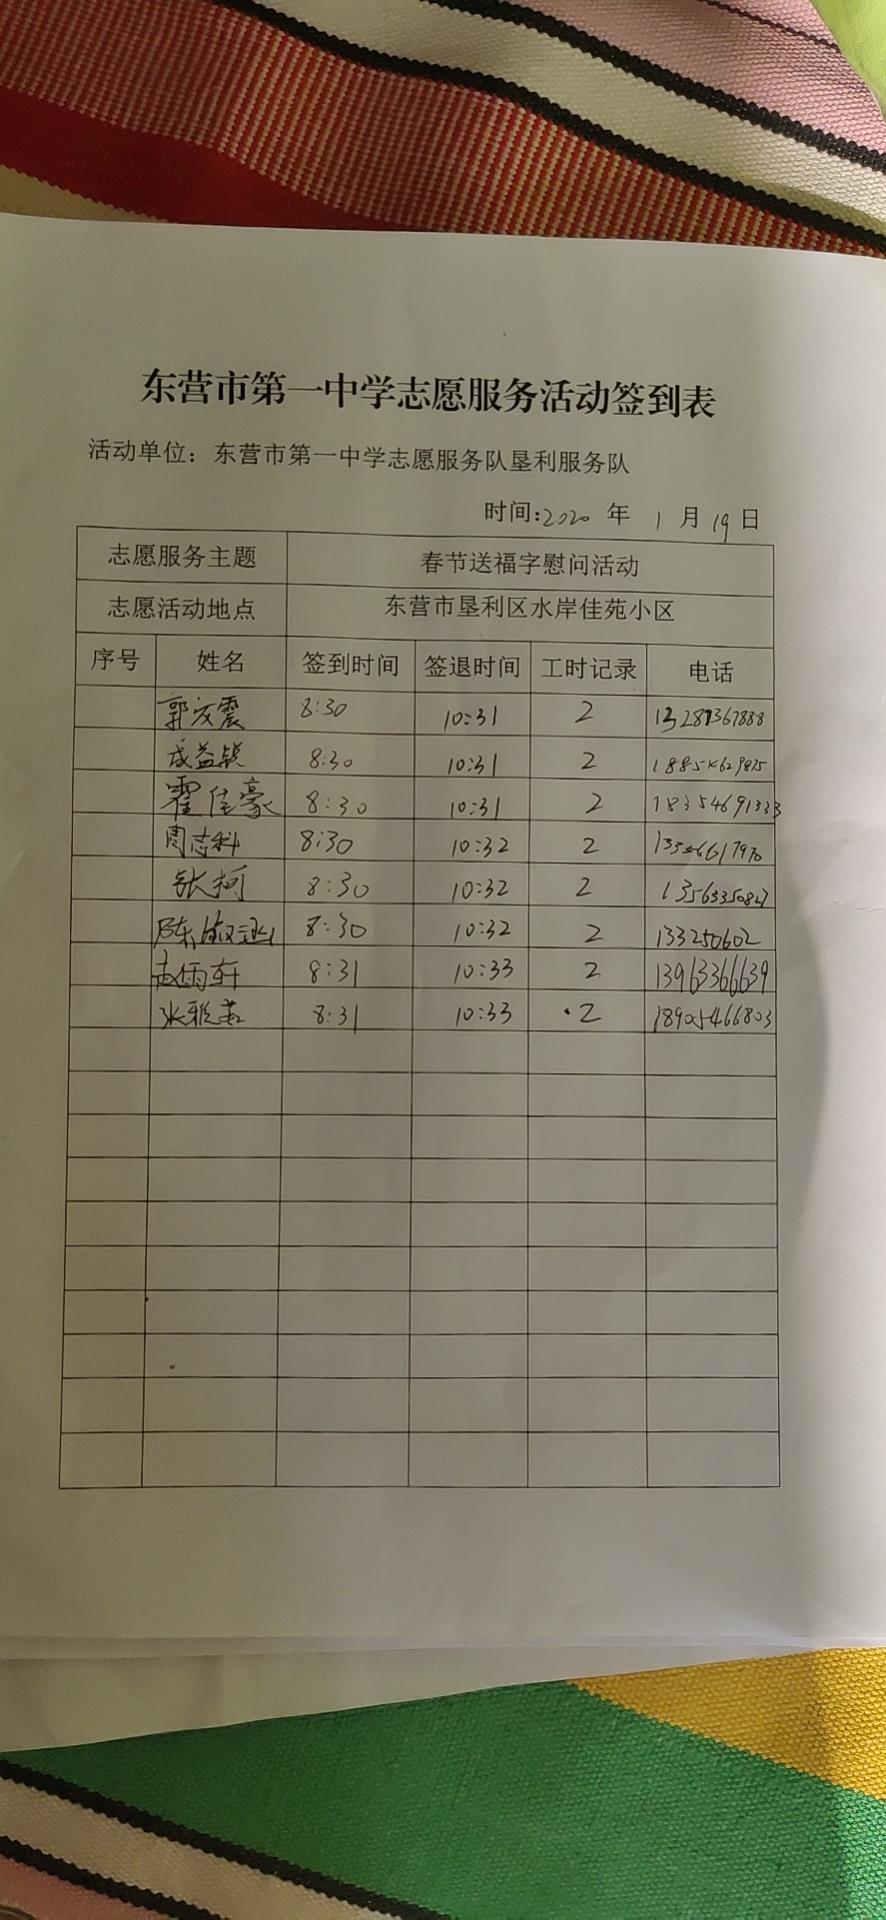 东营市第一中学志愿服务活动签到表
活动单位：东营市第一中学志愿服务队垦利服务队
时间:2020 年 1 月 19 日
志愿服务主题 春节送福字慰问活动
志愿活动地点 东营市垦利区水岸佳苑小区
序号 姓名 签到时间 签退时间 工时记录 电话
郭文震 8:30 10:31 2
8:30 10:31 2
霍佳豪 8:30 10:31 2 18354691333
周志科 8:30 10:32 2
张柯 8:30 10:32 2
陈淑涵 8:30 10:32 2 133250602
赵雨轩 8:31 10:33 2 13963366639
张雅茹 8:31 10:33 2 18905466803